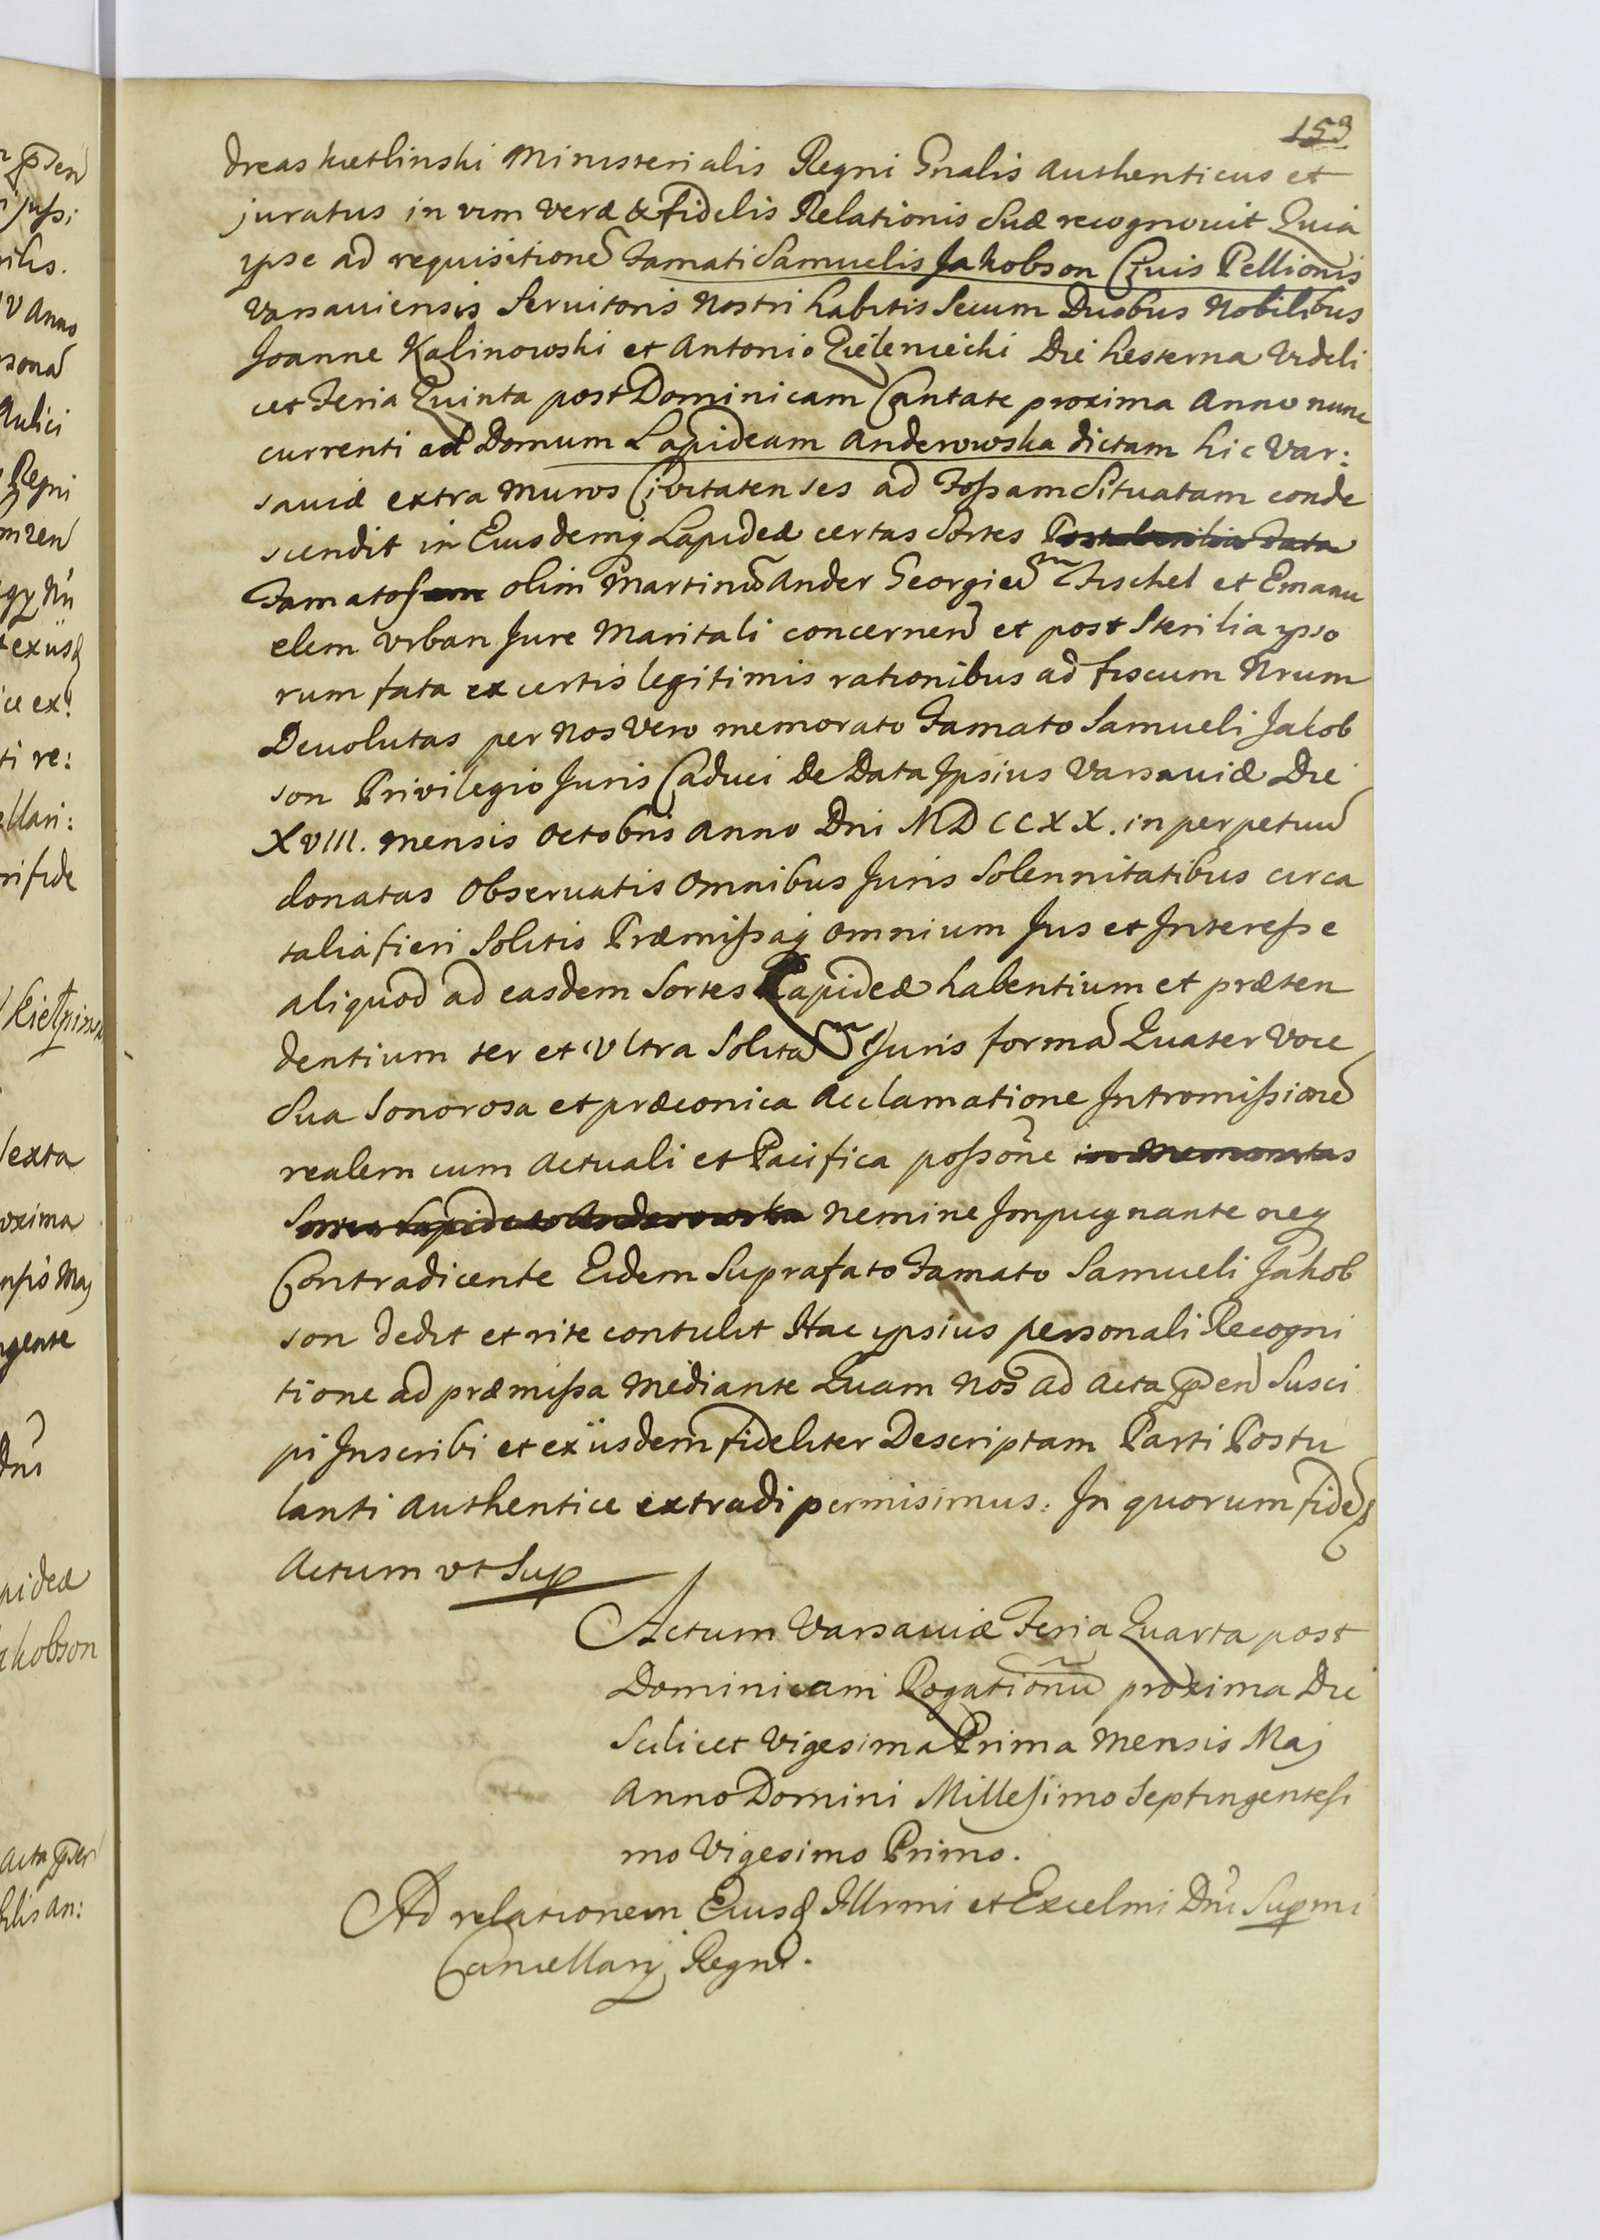 153
dreas Kietlinski Ministerialis Regni Gnalis Authenticus et
juratus in vim veræ & fidelis Relationis Suæ recognovit Quia
ypse ad requisitionē Famati Samuelis Jakobson Civis Pellionis
Varsaviensis Servitoris Nostri habitis Secum Duobus Nobilibus
Joanne Kalinowski et Antonio Zieleniecki Die hesterna Videli
cet Feria Quinta post Dominicam Cantate proxima Anno nunc
currenti ad Domum Lapideam Anderowska dictam hic Var:
saviæ extra muros Civitatenses ad Fossam Situatam conde
scendit in Eiusdemq Lapideæ certas Sortes Post sterilia Fata
Famatos olim Martinū Ander Georgiū Fischel et Emanu
elem Urban Jure Maritali concernen et post Sterilia ypso
rum fata ex certis legitimis rationibus ad fiscum Nrum
Devolutas per Nos Vero memorato Famato Samueli Jakob
son Privilegio Juris Caduci De Data Ipsius Varsaviæ Die
XVIII. Mensis Octobris Anno Dni MDCCXX. in perpetuū
donatas Observatis Omnibus Juris Solennitatibus circa
talia fieri Solitis Præmissaq omnium Jus et Interesse
aliquod ad easdem Sortes Lapideæ habentium et præten
dentium ter et Ultra Solitā Juris formā Quater Voce
Sua Sonorosa et præconica Acclamatione Intromissionē
realem cum Actuali et Pacifica possōne in Memoratas
Sortes Lapideæ Anderowska Nemine Impugnante neq
Contradicente Eidem Suprafato Famato Samueli Jakob
son dedit et rite contulit Hac ypsius personali Recogni
tione ad præmissa mediante Quam Nos ad Acta pten Susci
pi Inscribi et exiisdem fideliter Descriptam Parti Postu
lanti Authentice extradi permisimus. In quorum fidē
Actum vt Sup
Actum Varsaviæ Feria Quarta post
Dominicam Rogationū proxima Die
Scilicet Vigesima Prima Mensis Maj
Anno Domini Millesimo Septingentesi
mo Vigesimo Primo.
Ad relationem Eiusd Illrmi et Excelmi Dni Supmi
Cancellarij Regni.